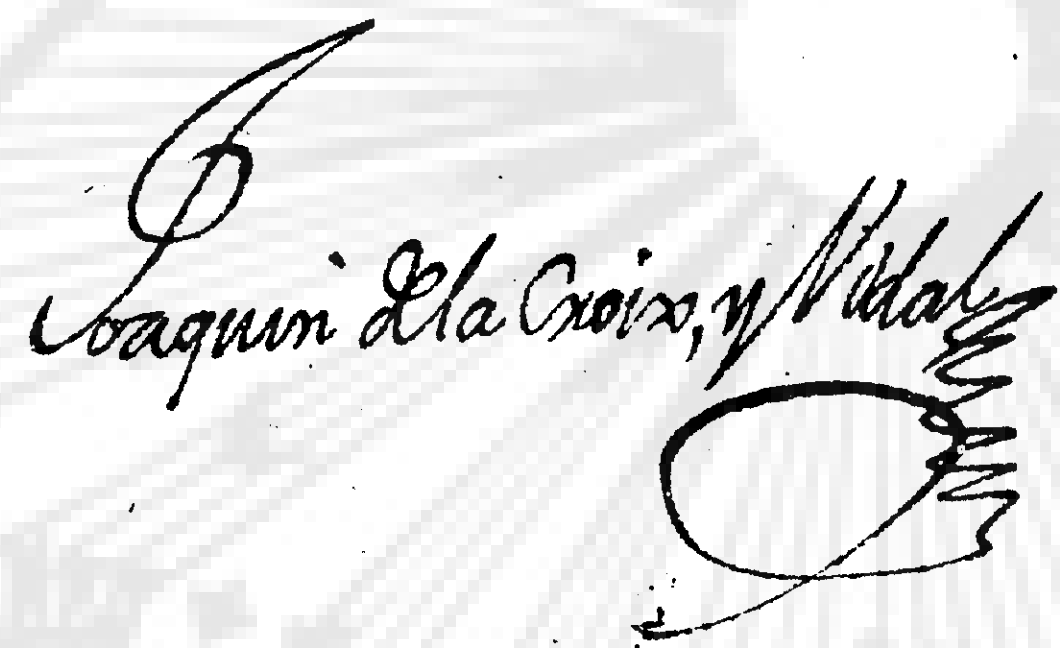 Joaquin dela Croix, y Vidal